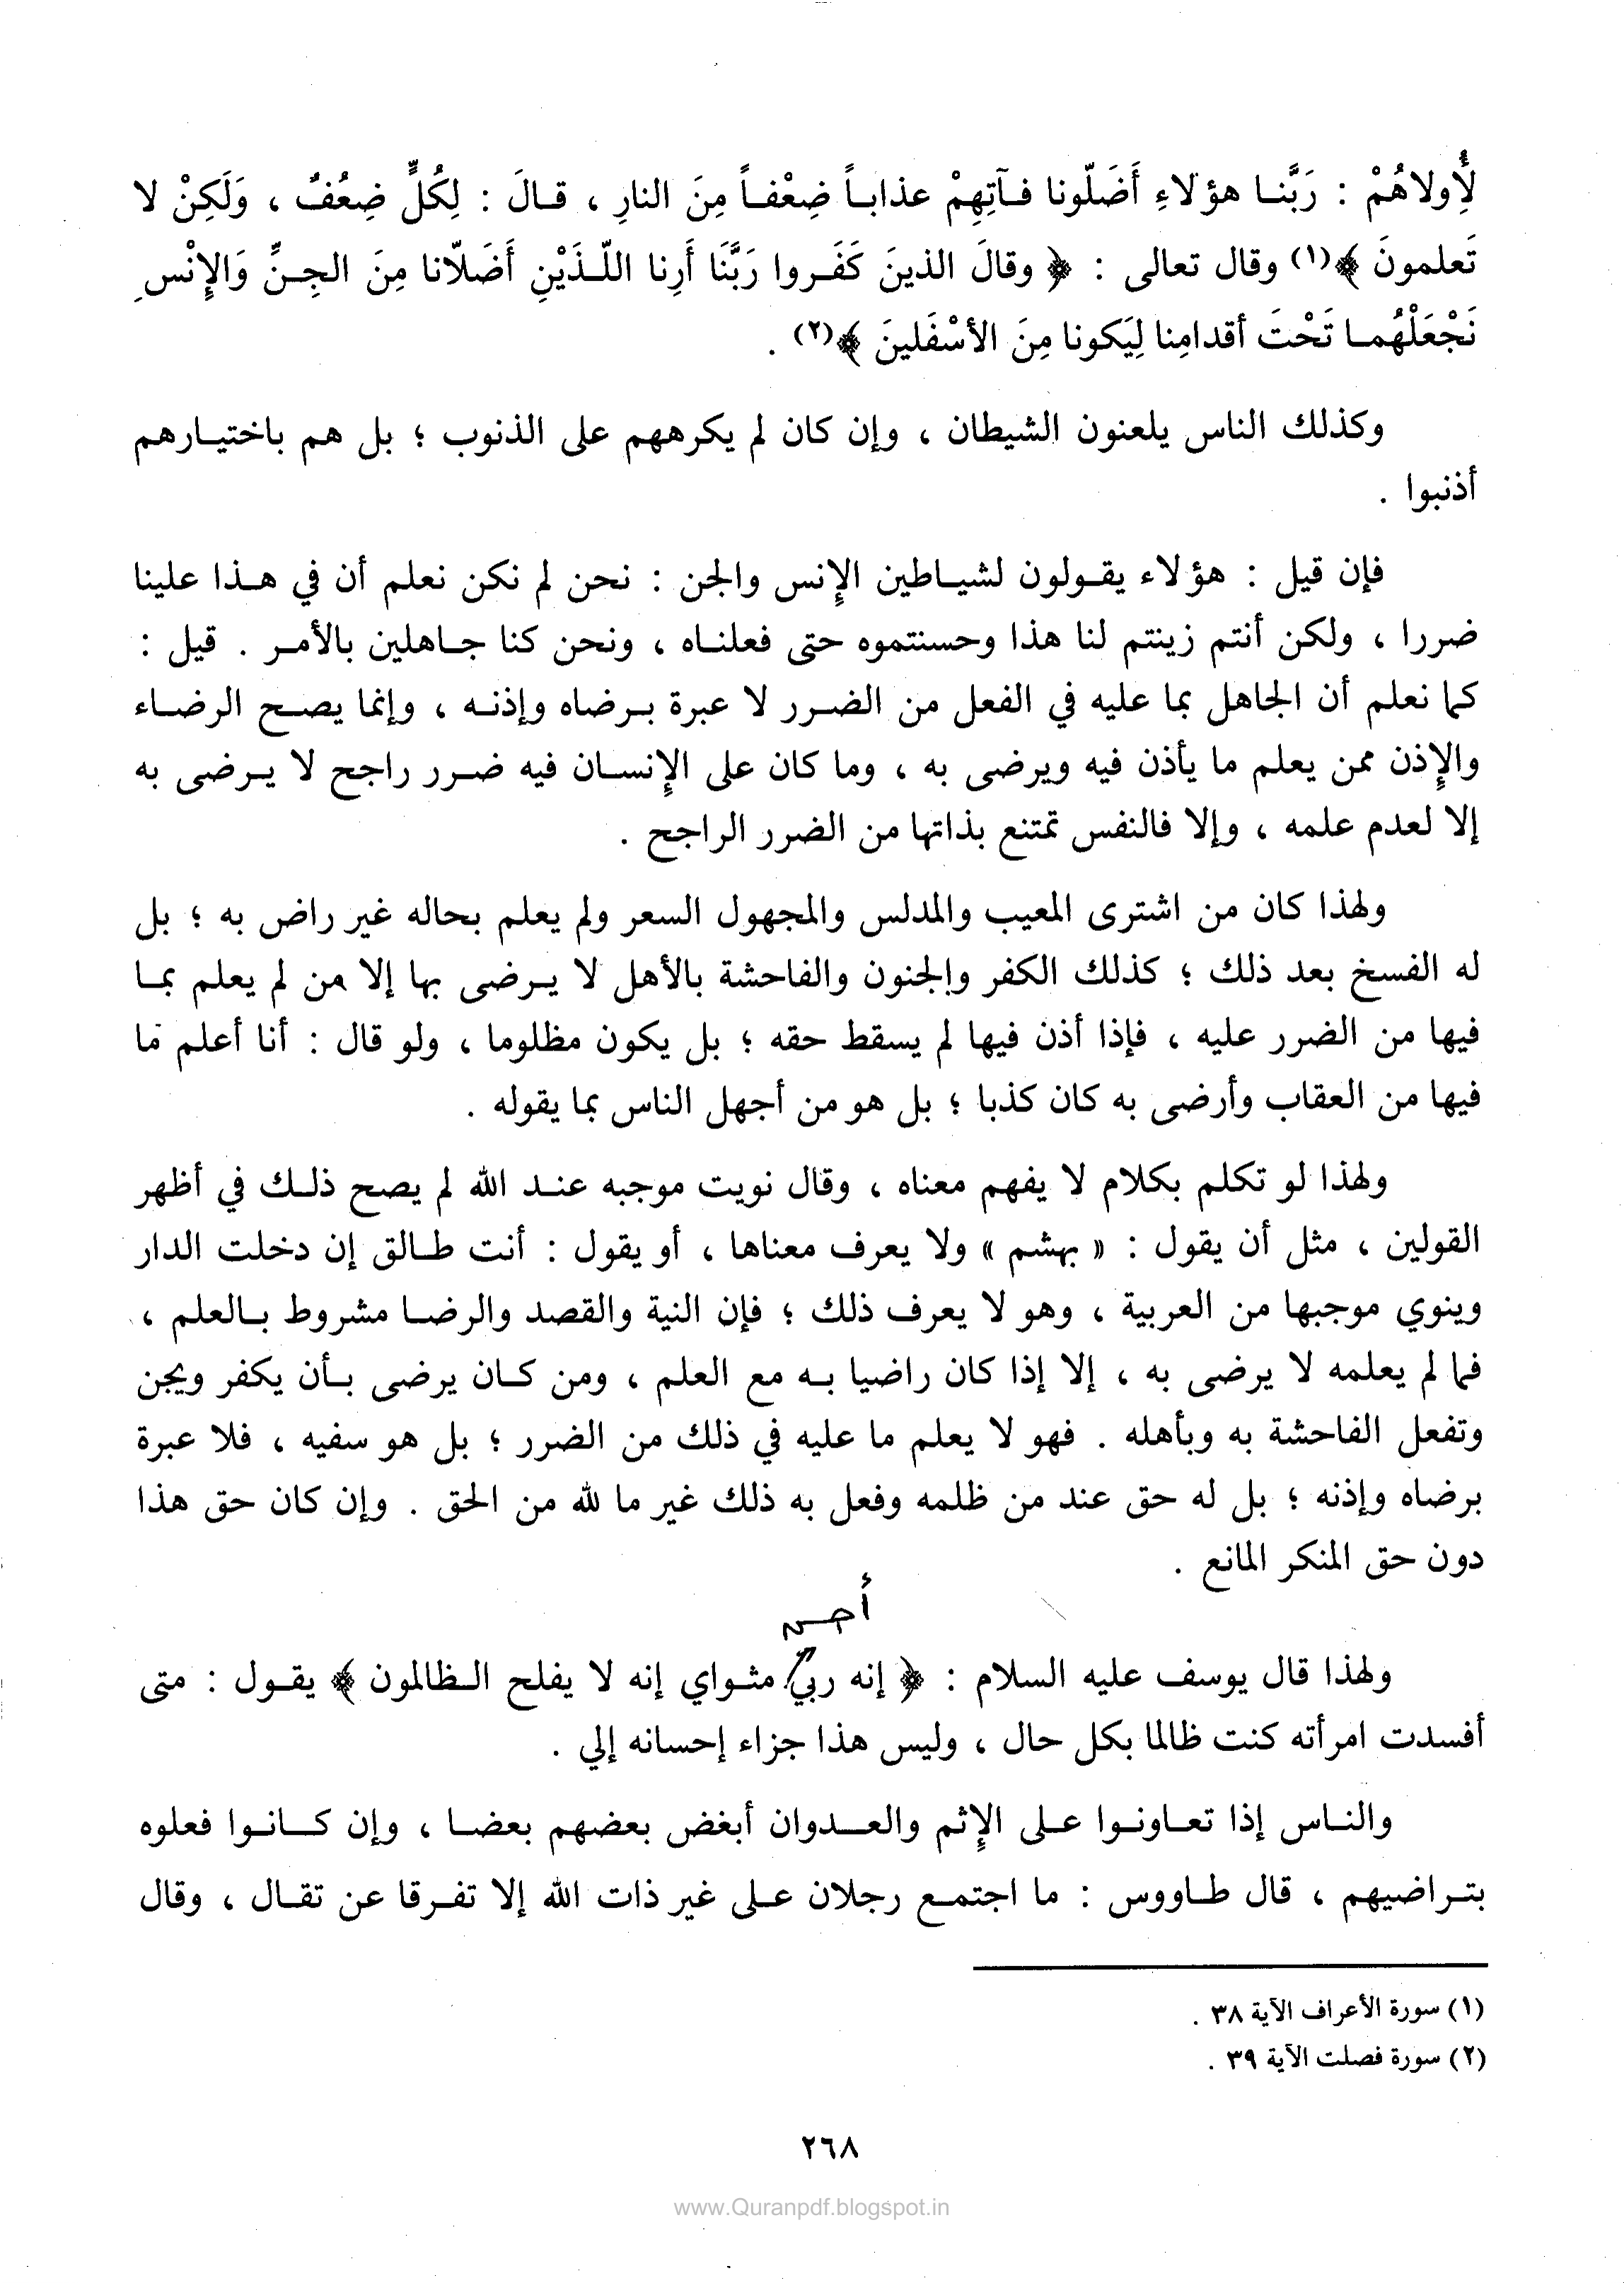 لِأُولاهُمْ : رَبَّنا هؤلاءِ أَضَلّونا فآتِهِمْ عذاباً ضِعْفاً مِنَ النارِ ، قالَ : لِكُلٍّ ضِعُفٌ ، وَلَكِنْ لا
تَعلمونَ ﴾(١) وقال تعالى : ﴿ وقالَ الذينَ كَفَروا رَبَّنَا أَرِنا اللّذَيْنِ أَضَلّانا مِنَ الجِنِّ وَالإِنْسِ
نَجْعَلْهُما تَحْتَ أقدامِنا لِيَكونا مِنَ الأسْفَلينَ ﴾(٢) .
وكذلك الناس يلعنون الشيطان ، وإن كان لم يكرههم على الذنوب ؛ بل هم باختيارهم
أذنبوا .
فإن قيل : هؤلاء يقولون لشياطين الإنس والجن : نحن لم نكن نعلم أن في هذا علينا
ضررا ، ولكن أنتم زينتم لنا هذا وحسنتموه حتى فعلناه ، ونحن كنا جاهلين بالأمر . قيل :
كما نعلم أن الجاهل بما عليه في الفعل من الضرر لا عبرة برضاه وإذنه ، وإنما يصح الرضاء
والإذن ممن يعلم ما يأذن فيه ويرضى به ، وما كان على الإنسان فيه ضرر راجح لا يرضى به
إلا لعدم علمه ، وإلا فالنفس تمتنع بذاتها من الضرر الراجح .
ولهذا كان من اشترى المعيب والمدلس والمجهول السعر ولم يعلم بحاله غير راض به ؛ بل
له الفسخ بعد ذلك ؛ كذلك الكفر والجنون والفاحشة بالأهل لا يرضى بها إلا من لم يعلم بما
فيها من الضرر عليه ، فإذا أذن فيها لم يسقط حقه ؛ بل يكون مظلوما ، ولو قال : أنا أعلم ما
فيها من العقاب وأرضى به كان كذبا ؛ بل هو من أجهل الناس بما يقوله .
ولهذا لو تكلم بكلام لا يفهم معناه ، وقال نويت موجبه عند الله لم يصح ذلك في أظهر
القولين ، مثل أن يقول : « بهشم » ولا يعرف معناها ، أو يقول : أنت طالق إن دخلت الدار
وينوي موجبها من العربية ، وهو لا يعرف ذلك ؛ فإن النية والقصد والرضا مشروط بالعلم ،
فما لم يعلمه لا يرضى به ، إلا إذا كان راضيا به مع العلم ، ومن كان يرضى بأن يكفر ويجن
وتفعل الفاحشة به وبأهله . فهو لا يعلم ما عليه في ذلك من الضرر ؛ بل هو سفيه ، فلا عبرة
برضاه وإذنه ؛ بل له حق عند من ظلمه وفعل به ذلك غير ما لله من الحق . وإن كان حق هذا
دون حق المنكر المانع .
أحسن
ولهذا قال يوسف عليه السلام : ﴿ إنه ربي مثواي إنه لا يفلح الظالمون ﴾ يقول : متى
أفسدت امرأته كنت ظالما بكل حال ، وليس هذا جزاء إحسانه إلي .
والناس إذا تعاونوا على الإثم والعدوان أبغض بعضهم بعضا ، وإن كانوا فعلوه
بتراضيهم ، قال طاووس : ما اجتمع رجلان على غير ذات الله إلا تفرقا عن تقال ، وقال
(١) سورة الأعراف الآية ٣٨ .
(٢) سورة فصلت الآية ٣٩ .
٢٦٨
www.Quranpdf.blogspot.in